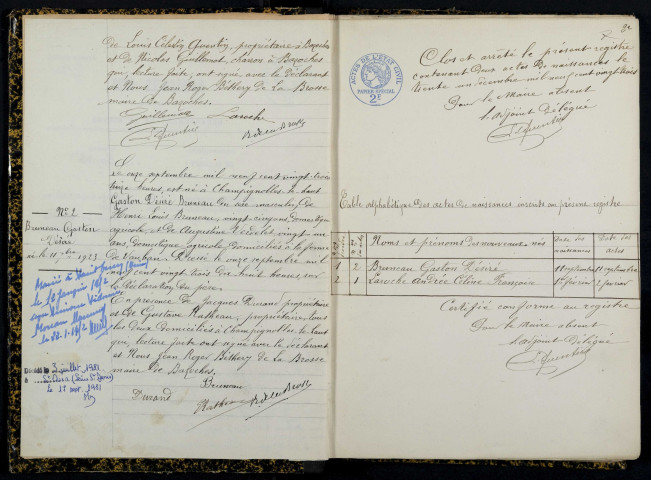 De Louis Célestin Quentin, propriétaire à Bazoches
et de Nicolas Guillemot, charron à Bazoches
qui, lecture faite, ont signé, avec le Déclarant
et Nous Jean Roger Béthery de La Brosse
maire De Bazoches.
Guillemot Laroche
Quentin B de La Brosse
N° 2
Bruneau Gaston
Désiré
né le 11 7bre 1923
Le onze septembre mil neuf cent vingt-trois
heures, est né à Champignolles le haut
Gaston Désiré Bruneau du sexe masculin, de
Henri Louis Bruneau, vingt-cinq ans, domestique
agricole et de Augustine
ans, domestique agricole, domiciliés à la ferme
de Vauban. Dressé le onze septembre mil
neuf cent vingt trois dix huit heures sur
la déclaration du père.
En présence de Jacques Durand propriétaire
et de Gustave Ratheau, propriétaire, tous
les Deux domiciliés à Champignolles le haut
qui, lecture faite ont signé avec le déclarant
et Nous Jean Roger Béthery de La Brosse
maire De Bazoches.
Bruneau
Durand Ratheau B de La Brosse
Marié à
le
Décédé le 9 juillet 1981
à St Denis (Seine St Denis)
le 17 nov. 1981
ACTES DE L'ÉTAT CIVIL
PAPIER SPÉCIAL
2F
Clos et arrêté le présent registre
contenant Deux actes De naissances le
trente un décembre mil neuf cent vingt trois
Pour le Maire absent
l'adjoint Délégué
Quentin
Table alphabétique Des actes De naissances inscrits au présent registre
Noms et prénoms Des nouveaux-nés Date des naissances Date des actes
1 2 Bruneau Gaston Désiré 11 septembre 11 septembre
2 1 Laroche Andrée Céline Françoise 1er février 2 février
Certifié conforme au registre
Pour le Maire absent
l'adjoint Délégué
Quentin